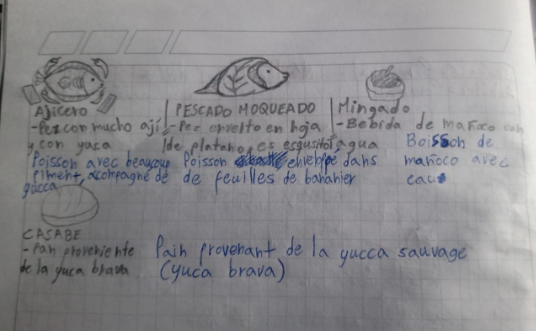 Ajicero
-Pez con mucho ají
y con yuca
Poisson avec beaucoup
piment, acompagné de
yucca
PESCADO MOQUEADO
-Pez envuelto en hoja
de platano, es esquisito
Poisson enveloppe dans
de feuilles de bananier
Mingado
-Bebida de mañoco con
agua
Boisson de
mañoco avec
eau
CASABE
-Pan proveniente
de la yuca brava
Pain provenant de la yucca sauvage
(yuca brava)